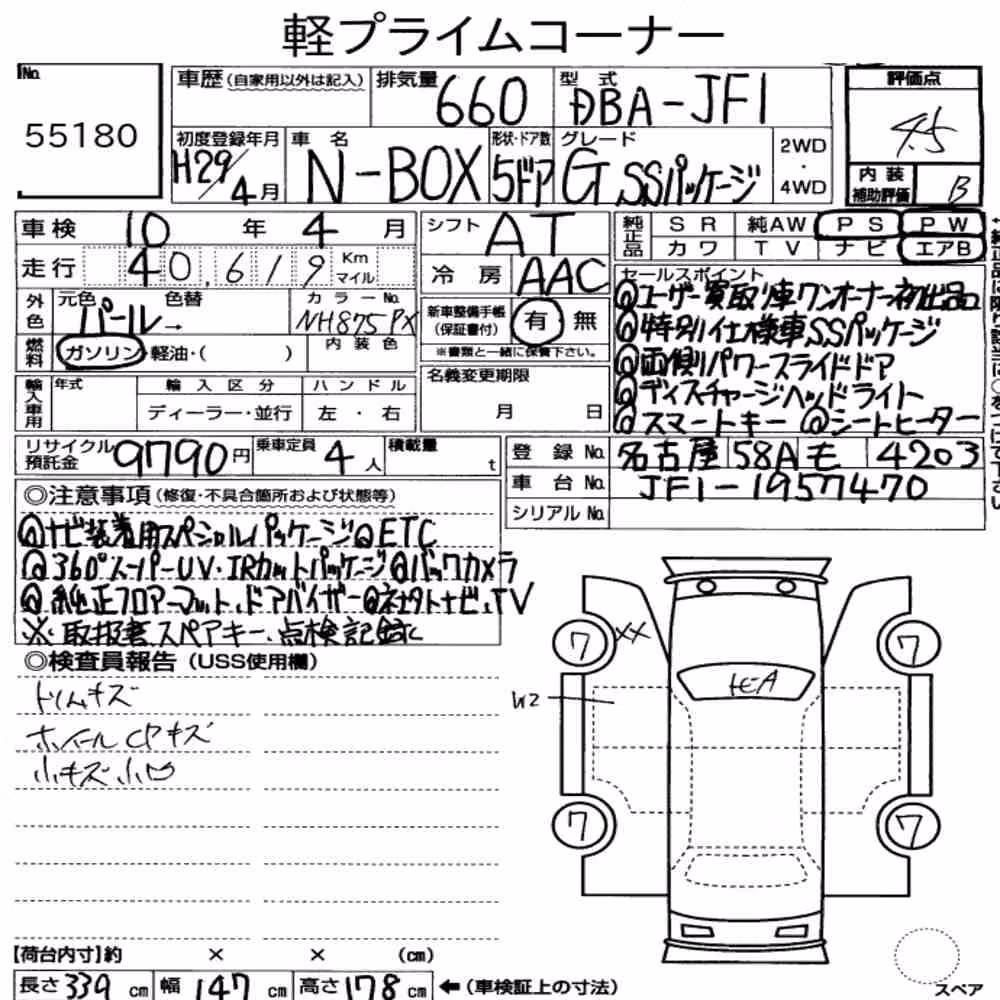 軽プライムコーナー
No. 55180
車歴 (自家用以外は記入)
排気量 660
型式 DBA-JF1
評価点 4.5
内装補助評価 B
初度登録年月 H29/4月
車名 N-BOX
形状・ドア数 5ドア
グレード G SSパッケージ
2WD・4WD
車検 10年 4月
シフト AT
純正品 SR 純AW PS PW
カワ TV ナビ エアB
走行 40,619 Km マイル
冷房 AAC
外色 元色 パール→ 色替
カラーNo. NH875PX
燃料 ガソリン・軽油・( )
内装色
新車整備手帳(保証書付) 有 無
※書類と一緒に保管下さい。
セールスポイント
◎ユーザー買取車ワンオーナー初出品
◎特別仕様車SSパッケージ
◎両側パワースライドドア
◎ディスチャージヘッドライト
◎スマートキー ◎シートヒーター
輸入車用 年式 輸入区分 ハンドル
ディーラー・並行 左・右
名義変更期限
月 日
リサイクル預託金 9790円
乗車定員 4人
積載量 t
登録No. 名古屋 58A モ 4203
車台No. JF1-1957470
シリアルNo.
◎注意事項 (修復・不具合箇所および状態等)
◎ナビ装着用スペシャルパッケージ◎ETC
◎360°スーパーUV・IRカットパッケージ◎バックカメラ
◎純正フロアーマット、ドアバイザー◎社外ナビ、TV
※・取扱書、スペアキー、点検記録
◎検査員報告 (USS使用欄)
トリムキズ
ホイールCPキズ
小キズ小凹
7 XX 7
W2
7 7
【荷台内寸】約 × × (cm)
長さ 339 cm 幅 147 cm 高さ 178 cm ←(車検証上の寸法)
スペア